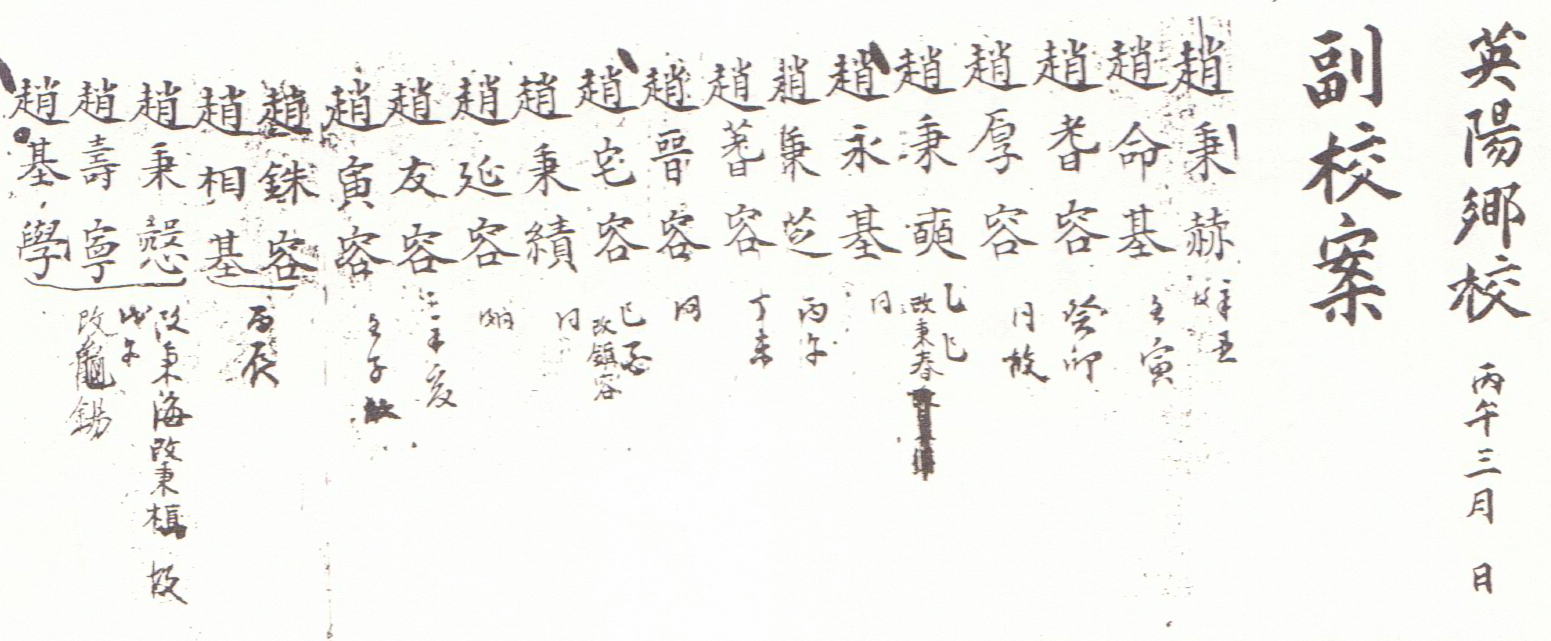 英陽鄕校 丙午三月 日
副校案
趙秉赫 辛丑
趙命基 壬寅
趙耆容 癸卯
趙厚容 同 故
趙秉奭 乙巳 改秉春
趙永基 同
趙秉芝 丙午
趙蓍容 丁未
趙晉容 同
趙宅容 己酉 改鎭容
趙秉績 同
趙延容 同
趙友容 辛亥
趙寅容 壬子 故
趙銖容 丙辰
趙相基
趙秉愨 改秉海改秉植 故
趙壽寧 戊午 改龜錫
趙基學